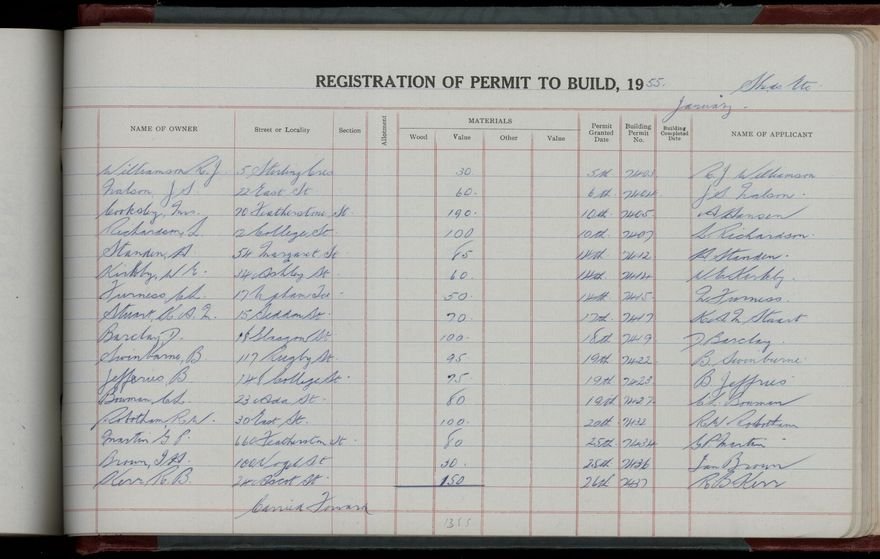 REGISTRATION OF PERMIT TO BUILD, 1955. Sheds Etc
January.
NAME OF OWNER Street or Locality Section Allotment MATERIALS Wood Value Other Value Permit Granted Date Building Permit No. Building Completed Date NAME OF APPLICANT
Williamson R. J 5 Stirling Cres 30. 5th 7403 R. J. Williamson
J. S. 22 East St 60. 6th 7404 J. S.
Cooksley, Mrs. 70 Featherstone St. 190. 10th 7405 A Hansen
Richardson, L 2 College St. 100 10th 7407 L. Richardson.
Standen, A 54 Margaret St 65 14th 7412 A Standen.
Kirkby, W. E. 14 Ashley St 60. 14th 7414 W. E. Kirkby.
Furness, 17 Tce 50. 14th 7415 Furness.
Stuart, K. A. 15 St. 70. 17th 7417 K. A. Stuart
Barclay, D. Glasgow St 100. 18th 7419 D Barclay.
Swinburne, B 117 Rugby St. 95 19th 7422 B. Swinburne
Jefferies, B. 148 College St. 75 19th 7423 B Jeffries
Bowman, C. L. 23 Ada St. 80 19th 7427 C. L. Bowman
Robotham, R. W. 30 East St. 100. 20th 7432 R. W. Robotham
Martin G. P. 66 Featherston St. 80 25th 7434 G P Martin
Brown, 100 Vogel St 30. 25th 7436 Ian Brown
Kerr, R. B. 24 St. 150 26th 7437 R. B Kerr
Carried Forward 1355